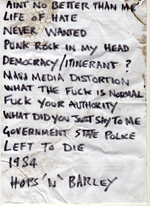 AINT NO BETTER THAN ME
LIFE OF HATE
NEVER WANTED
PUNK ROCK IN MY HEAD
DEMOCRACY/ITINERANT ?
MASS MEDIA DISTORTION
WHAT THE FUCK IS NORMAL
FUCK YOUR AUTHORITY
WHAT DID YOU JUST SAY TO ME
GOVERNMENT STATE POLICE
LEFT TO DIE
1984
HOPS 'N' BARLEY